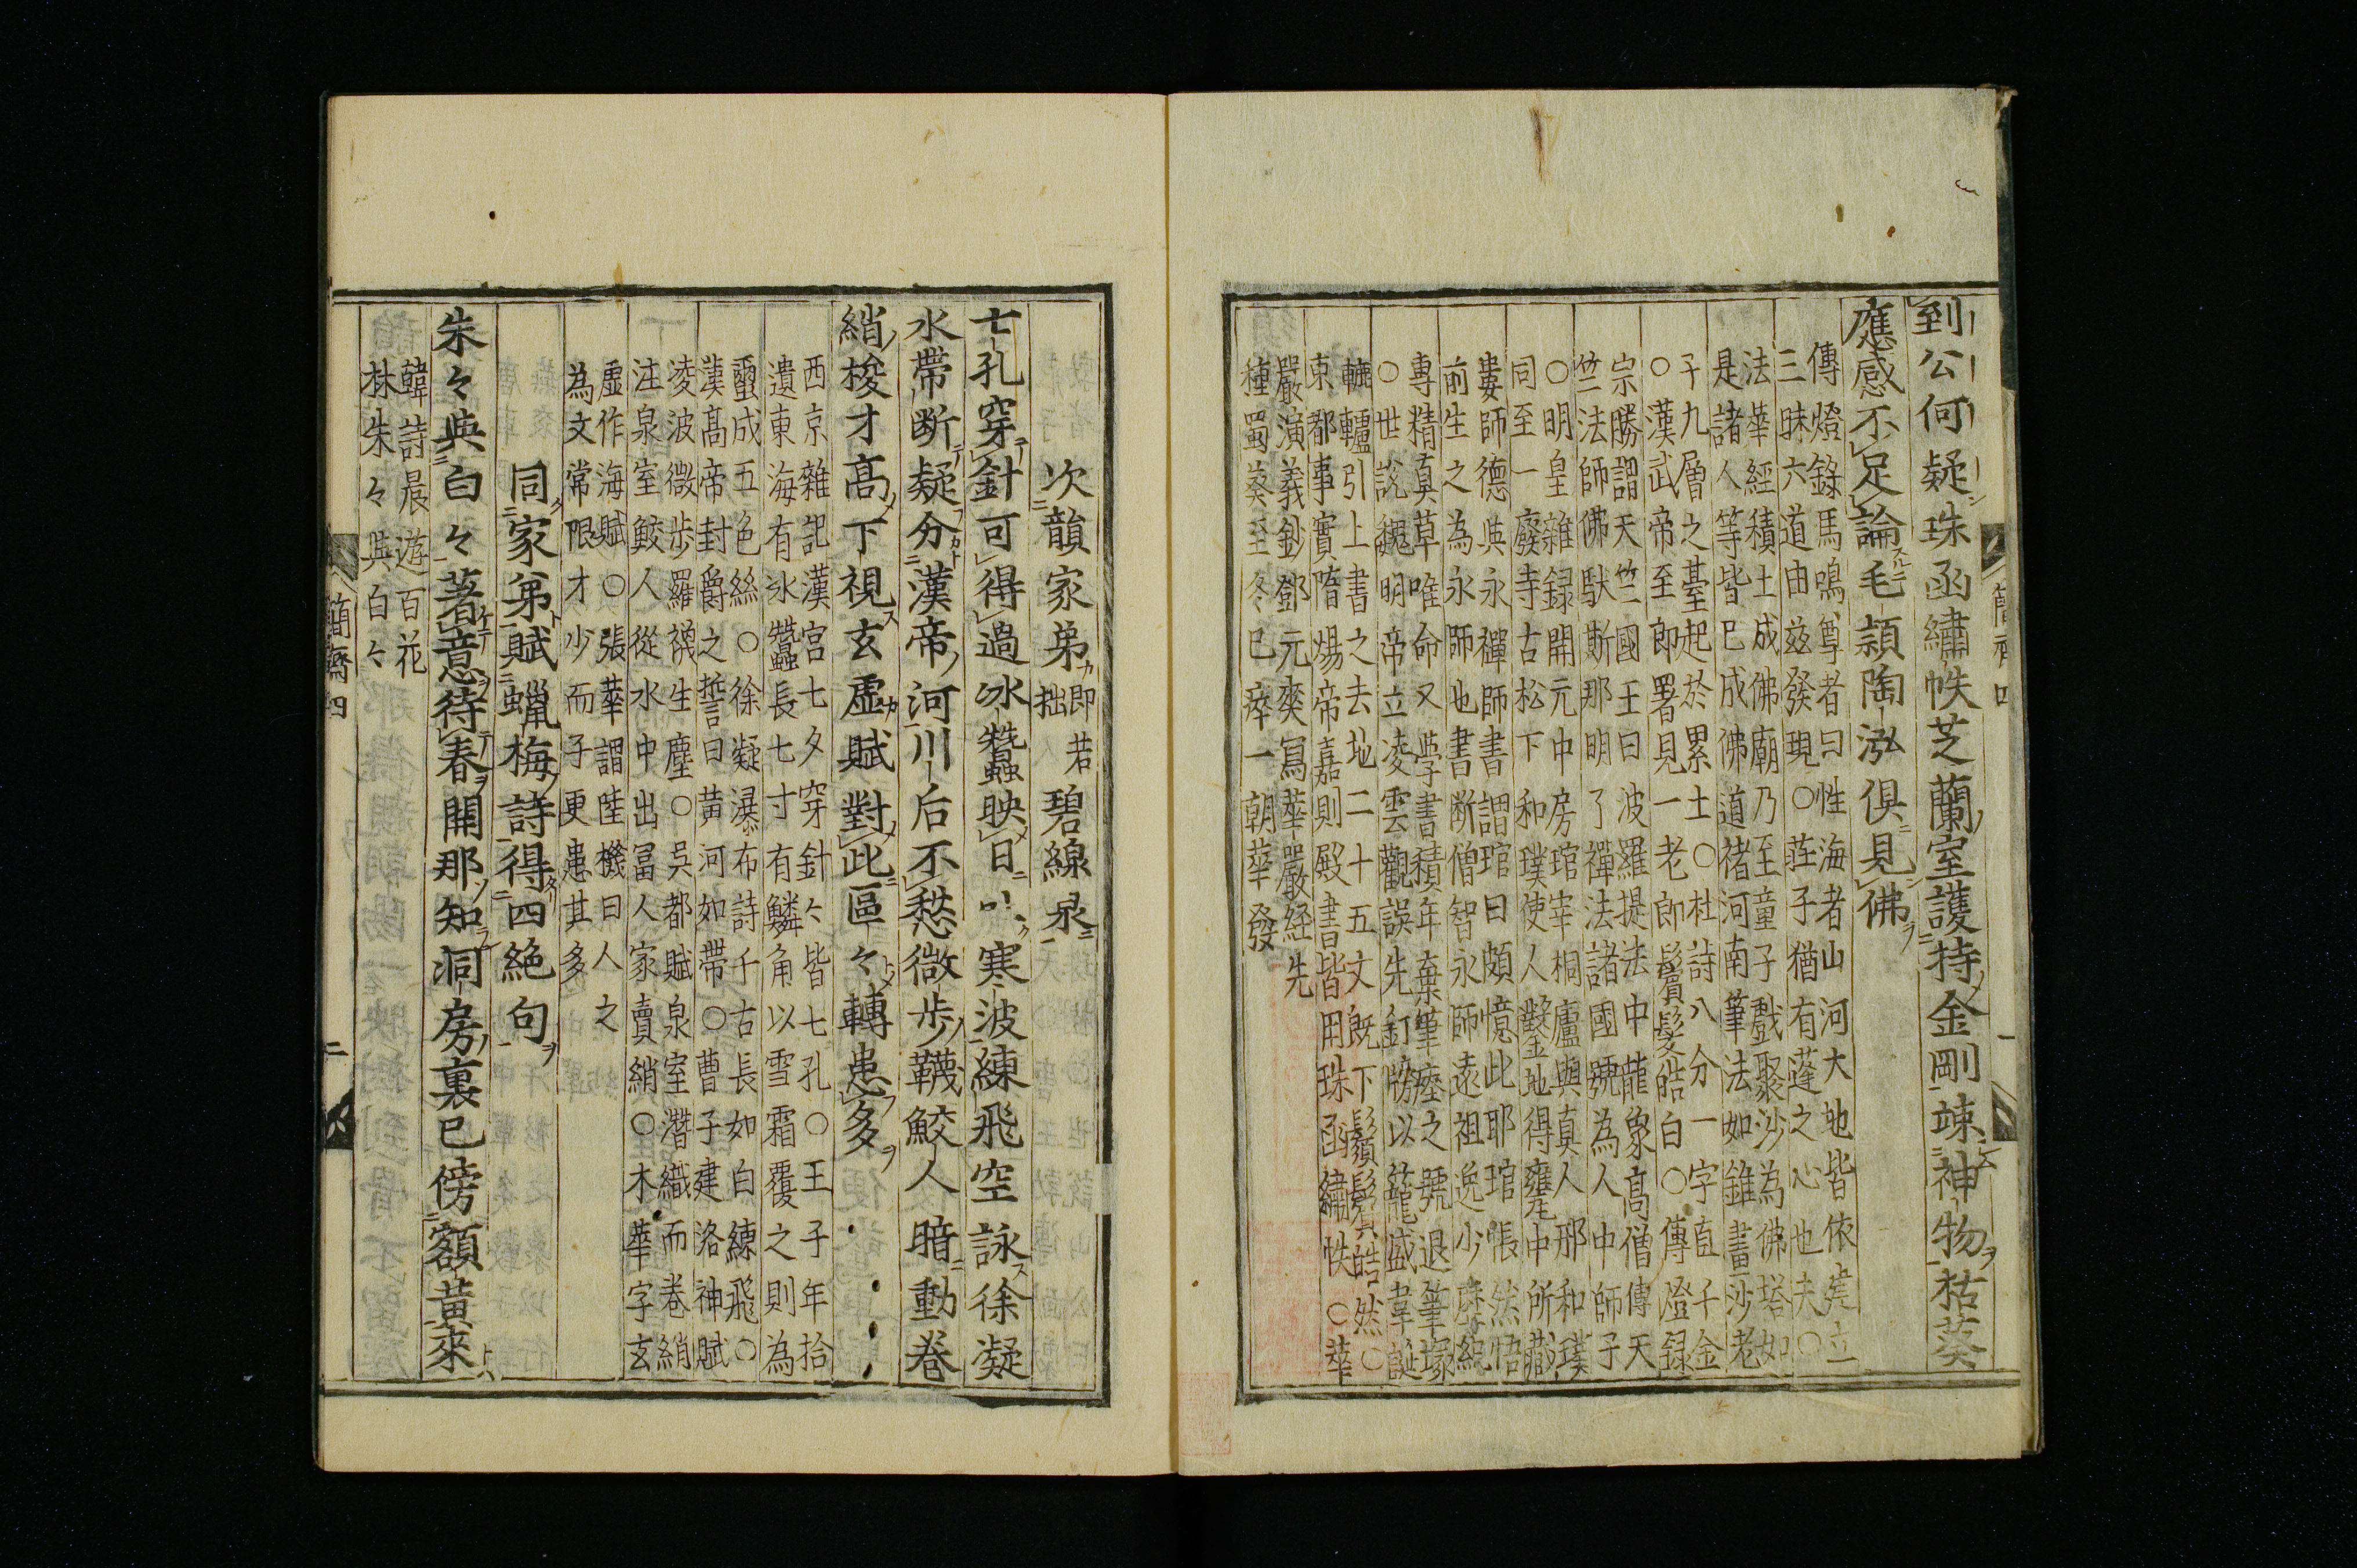 到公何疑珠函繡帙芝蘭室護持金剛竦神物枯葵
應感不足論毛穎陶泓俱見佛
傳燈錄馬鳴尊者曰性海者山河大地皆依建立
三昧六道由茲發現○莊子猶有蓬之心也夫○
法華經積土成佛廟乃至童子戲聚沙為佛塔如
是諸人等皆已成佛道褚河南筆法如錐畫沙老
子九層之臺起於累土○杜詩八分一字直千金
○漢武帝至郎署見一老郎鬢髮皓白○傳燈録
宗勝謂天竺國王曰波羅提法中龍象高僧傳天
竺法師佛馱斯那明了禪法諸國號為人中師子
○明皇雜録開元中房琯宰桐廬與真人邢和璞
同至一廢寺古松下和璞使人鑿地得甕中所藏
婁師德與永禪師書謂琯曰頗憶此耶琯悵然悟
前生之為永師也書断僧智永師遠祖逸少歷紀
專精真草唯命又學書積年棄筆瘞之號退筆塚
○世說魏明帝立凌雲觀誤先釘牓以籠盛韋誕
轆轤引上書之去地二十五丈既下鬚鬢皓然○
東都事實隋煬帝嘉則殿書皆用珠函繡帙○華
嚴演義鈔鄧元爽寫華嚴経先
種蜀葵至冬已瘁一朝華發
簡齋四
次韻家弟即若拙碧線泉
七孔穿針可得過冰蠶映日吐寒波練飛空詠徐凝
水帶断疑分漢帝河川后不愁微步韈鮫人暗動卷
綃梭才高下視玄虛賦對此區々轉患多
西京雜記漢宮七夕穿針々皆七孔○王子年拾
遺東海有冰蠶長七寸有鱗角以雪霜覆之則為
蠒成五色絲○徐凝瀑布詩千古長如白練飛○
漢高帝封爵之誓曰黃河如帶○曹子建洛神賦
淩波微步羅襪生塵○吳都賦泉室潛織而卷綃
注泉室鮫人從水中出冨人家賣綃○木華字玄
虛作海賦○張華謂陸機曰人之
為文常限才少而子更患其多
同家弟賦蠟梅詩得四絶句
朱々與白々著意待春開那知洞房裏已傍額黃來
韓詩晨遊百花
林朱々與白々
簡齋四
二